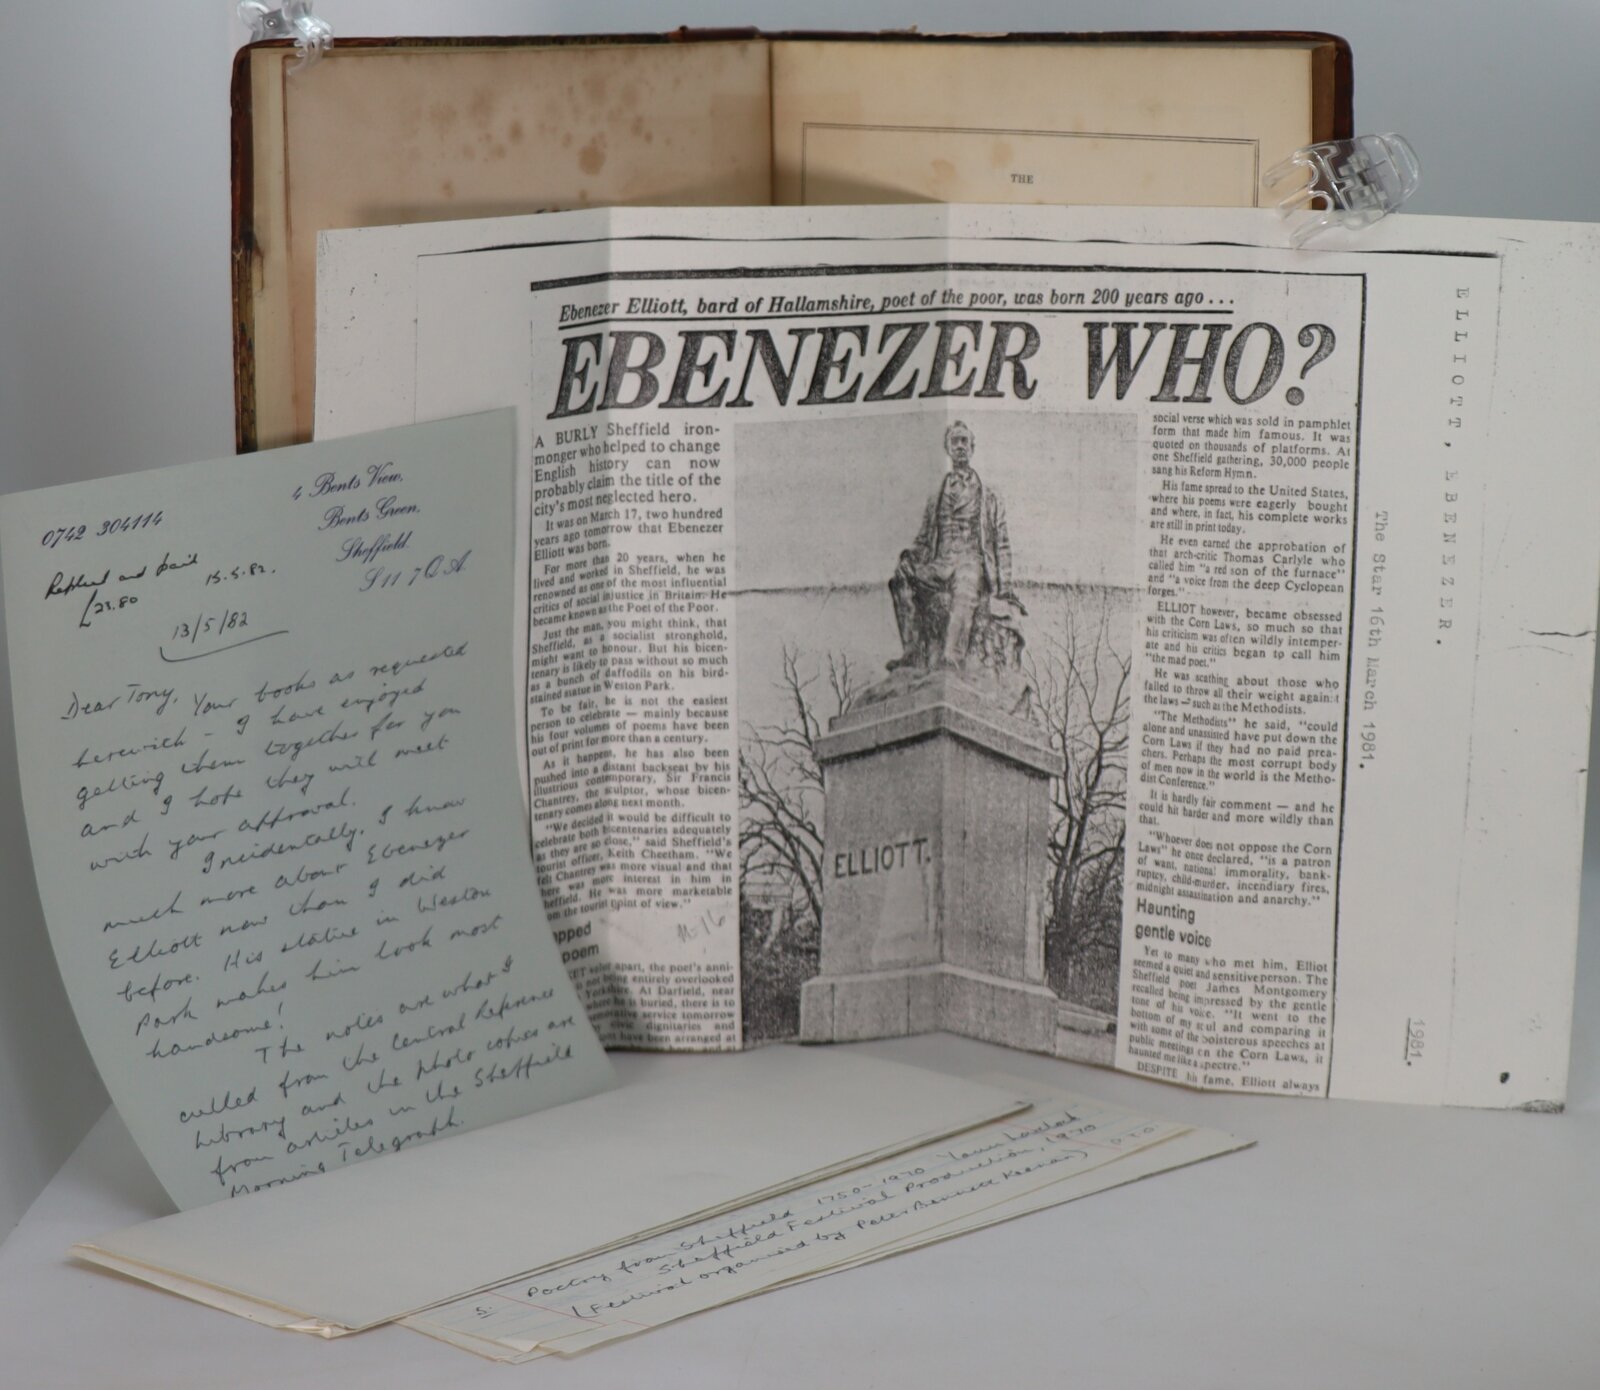 THE
Ebenezer Elliott, bard of Hallamshire, poet of the poor, was born 200 years ago . . .
EBENEZER WHO?
A BURLY Sheffield iron-
monger who helped to change
English history can now
probably claim the title of the
city's most neglected hero.
It was on March 17, two hundred
years ago tomorrow that Ebenezer
Elliott was born.
For more than 20 years, when he
lived and worked in Sheffield, he was
renowned as one of the most influential
critics of social injustice in Britain. He
became known as the Poet of the Poor.
Just the man, you might think, that
Sheffield, as a socialist stronghold,
might want to honour. But his bicen-
tenary is likely to pass without so much
as a bunch of daffodils on his bird-
stained statue in Weston Park.
To be fair, he is not the easiest
person to celebrate — mainly because
his four volumes of poems have been
out of print for more than a century.
As it happens, he has also been
pushed into a distant backseat by his
illustrious contemporary, Sir Francis
Chantrey, the sculptor, whose bicen-
tenary comes along next month.
"We decided it would be difficult to
celebrate both bicentenaries adequately
as they are so close," said Sheffield's
tourist officer, Keith Cheetham. "We
felt Chantrey was more visual and that
here was more interest in him in
heffield. He was more marketable
om the tourist point of view."
pped
poem
apart, the poet's anni-
not being entirely overlooked
Yorkshire. At Darfield, near
where he is buried, there is to
service tomorrow
civic dignitaries and
have been arranged at
M-16
ELLIOTT.
social verse which was sold in pamphlet
form that made him famous. It was
quoted on thousands of platforms. At
one Sheffield gathering, 30,000 people
sang his Reform Hymn.
His fame spread to the United States,
where his poems were eagerly bought
and where, in fact, his complete works
are still in print today.
He even earned the approbation of
that arch-critic Thomas Carlyle who
called him "a red son of the furnace"
and "a voice from the deep Cyclopean
forges."
ELLIOT however, became obsessed
with the Corn Laws, so much so that
his criticism was often wildly intemper-
ate and his critics began to call him
"the mad poet."
He was scathing about those who
failed to throw all their weight against
the laws — such as the Methodists.
"The Methodists" he said, "could
alone and unassisted have put down the
Corn Laws if they had no paid prea-
chers. Perhaps the most corrupt body
of men now in the world is the Metho-
dist Conference."
It is hardly fair comment — and he
could hit harder and more wildly than
that.
"Whoever does not oppose the Corn
Laws" he once declared, "is a patron
of want, national immorality, bank-
ruptcy, child-murder, incendiary fires,
midnight assassination and anarchy."
Haunting
gentle voice
Yet to many who met him, Elliot
seemed a quiet and sensitive person. The
Sheffield poet James Montgomery
recalled being impressed by the gentle
tone of his voice. "It went to the
bottom of my soul and comparing it
with some of the boisterous speeches at
public meetings on the Corn Laws, it
haunted me like a spectre."
DESPITE his fame, Elliott always
ELLIOTT, EBENEZER.
The Star 16th March 1981.
1981.
0742 304114
4 Bents View,
Bents Green,
Sheffield
S11 7QA
Replied and paid
15.5.82.
£23.80
13/5/82
Dear Tony,
Your books as requested
herewith - I have enjoyed
getting them together for you
and I hope they will meet
with your approval.
Incidentally, I know
much more about Ebenezer
Elliott now than I did
before. His statue in Weston
Park makes him look most
handsome!
The notes are what I
culled from the Central Reference
Library and the photo copies are
from articles in the Sheffield
Morning Telegraph.
5. Poetry from Sheffield 1750-1970
Sheffield Festival Production, 1970
(Festival organised by Peter Bennett Keenan)
P.T.O.